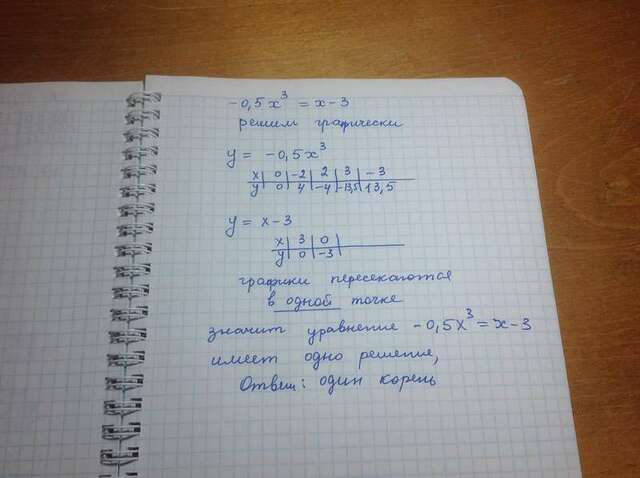 -0,5x³ = x-3
решим графически
y = -0,5x³
x | 0 | -2 | 2 | 3 | -3
y | 0 | 4 | -4 | -13,5 | 13,5
y = x-3
x | 3 | 0 |
y | 0 | -3 |
графики пересекаются
в одной точке
значит уравнение -0,5x³ = x-3
имеет одно решение,
Ответ: один корень